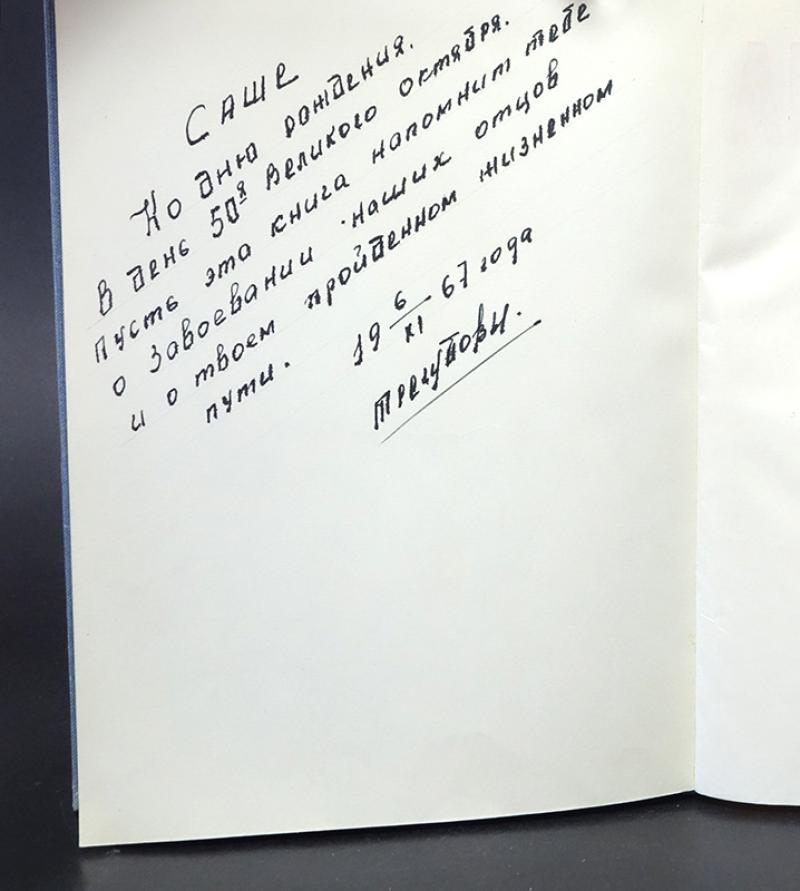 Саше
Ко дню рождения.
В день 50я Великого октября.
пусть эта книга напомнит тебе
о завоевании наших отцов
и о твоем пройденном жизненном
пути.
19 6/XI 67 года